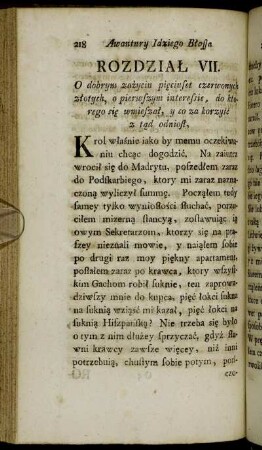 218 Awantury Idziego Błassa
ROZDZIAŁ VII.
O dobrym zażyciu pięciuset czerwonych
złotych, o pierwszym interessie, do któ-
rego się wmieszał, y co za korzyść
z tąd odniosł.
Krol właśnie iako by memu oczekiwa-
niu chcąc dogodzić, Na zaiutrz
wrocił się do Madrytu, poszedłem zaraz
do Podskarbiego, ktory mi zaraz nazna-
czoną wyliczył summę. Począłem tedy
samey tylko wyniosłości słuchać, porzu-
ciłem mizerną stancyą, zostawuiąc ią
owym Sekretarzom, ktorzy się na pta-
szey nieznali mowie, y naiąłem sobie
po drugi raz moy piękny apartament,
posłałem zaraz po krawca, ktory wszyst-
kim Gachom robił suknie, ten zaprowa-
dziwszy mnie do kupca, pięć łokci sukna
na suknią wziąść mi kazał, pięć łokci na
suknią Hiszpańską? Nie trzeba się było
o tym z nim dłużey sprzyczać, gdyż sła-
wni krawcy zawsze więcey, niż inni
potrzebuią, chustym sobie potym, poń-
czo-